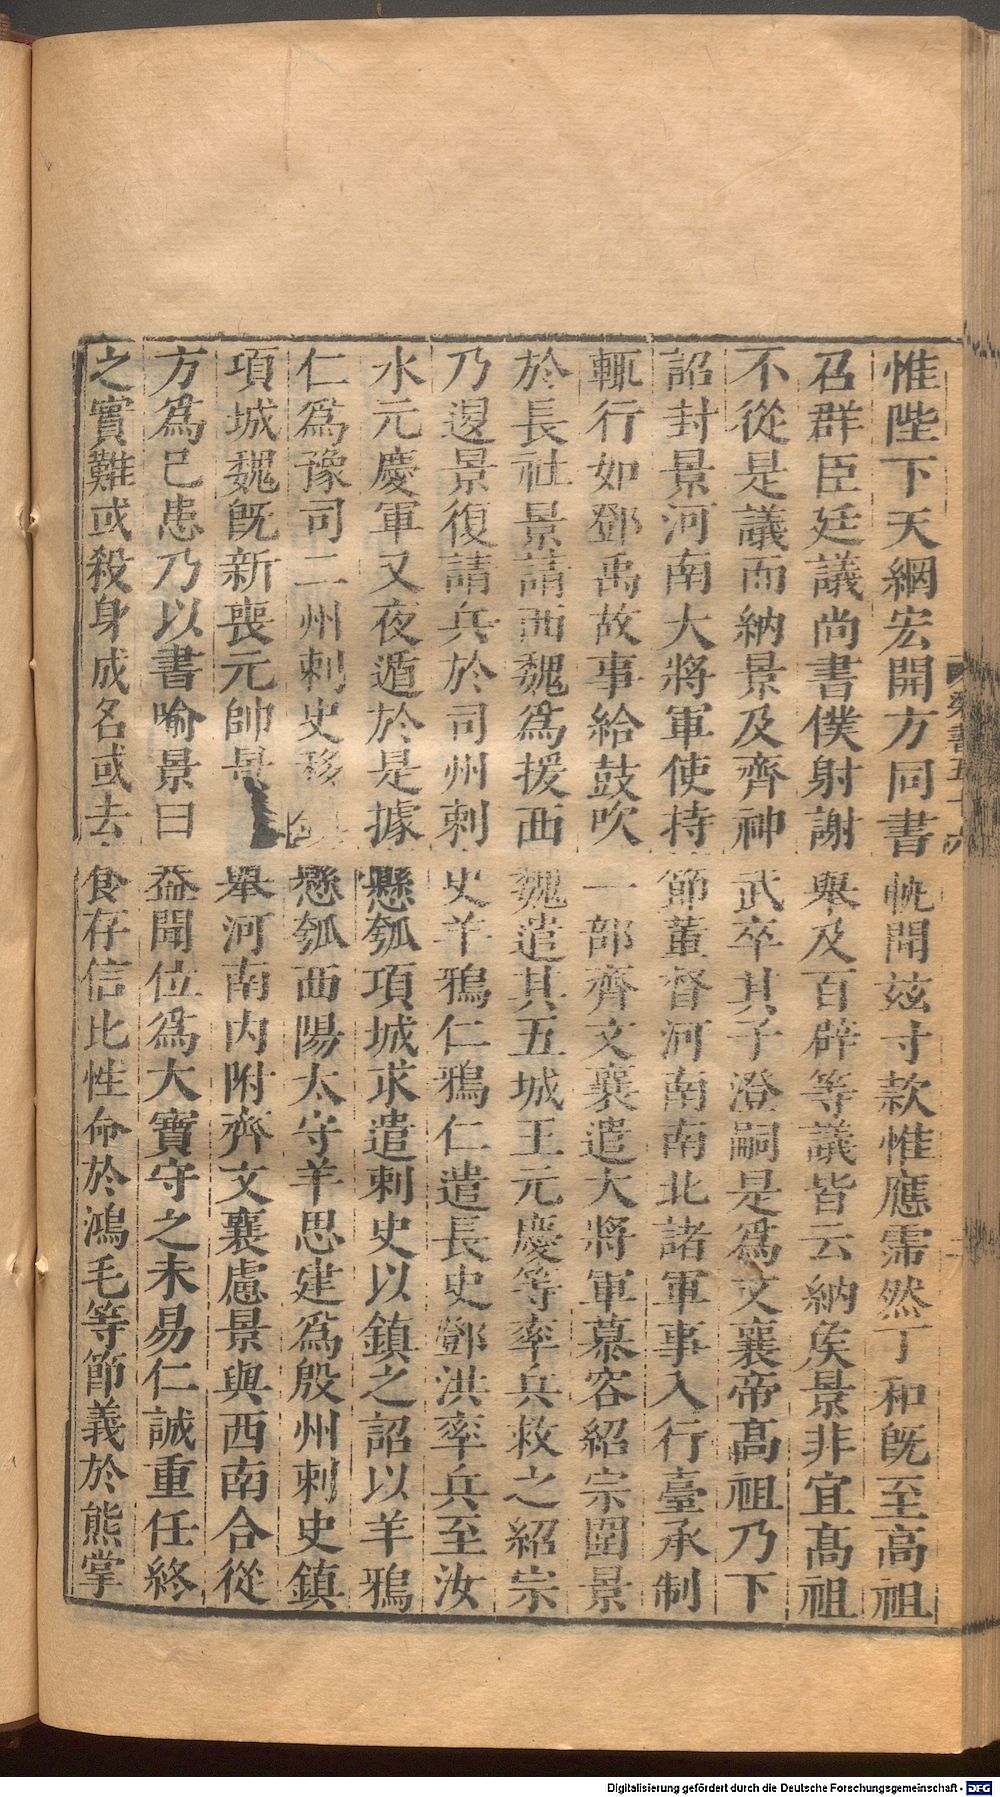 惟陛下天網宏開方同書軌聞兹寸款惟應霈然丁和旣至高祖
召群臣廷議尚書僕射謝舉及百辟等議皆云納矦景非宜高祖
不從是議而納景及齊神武卒其子澄嗣是爲文襄帝高祖乃下
詔封景河南大將軍使持節董督河南南北諸軍事入行臺承制
輒行如鄧禹故事給鼓吹一部齊文襄遣大將軍慕容紹宗圍景
於長社景請西魏爲援西魏遣其五城王元慶等率兵救之紹宗
乃退景復請兵於司州刺史羊鴉仁鴉仁遣長史鄧洪率兵至汝
水元慶軍又夜遁於是據懸瓠項城求遣刺史以鎮之詔以羊鴉
仁爲豫司二州刺史移鎮懸瓠西陽太守羊思建爲殷州刺史鎮
項城魏旣新喪元帥景舉河南内附齊文襄慮景與西南合從
方爲己患乃以書喻景曰葢聞位爲大寶守之未易仁誠重任終
之實難或殺身成名或去食存信比性命於鴻毛等節義於熊掌
梁書五十六
Digitalisierung gefördert durch die Deutsche Forschungsgemeinschaft - DFG